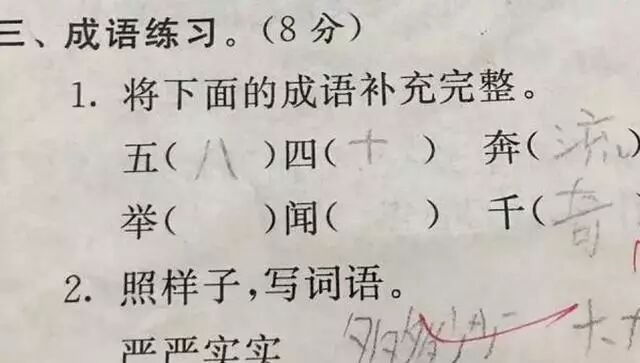 三、成语练习。(8分)
1. 将下面的成语补充完整。
五(八)四(十) 奔(流)
举( )闻( ) 千(奇
2. 照样子,写词语。
严严实实